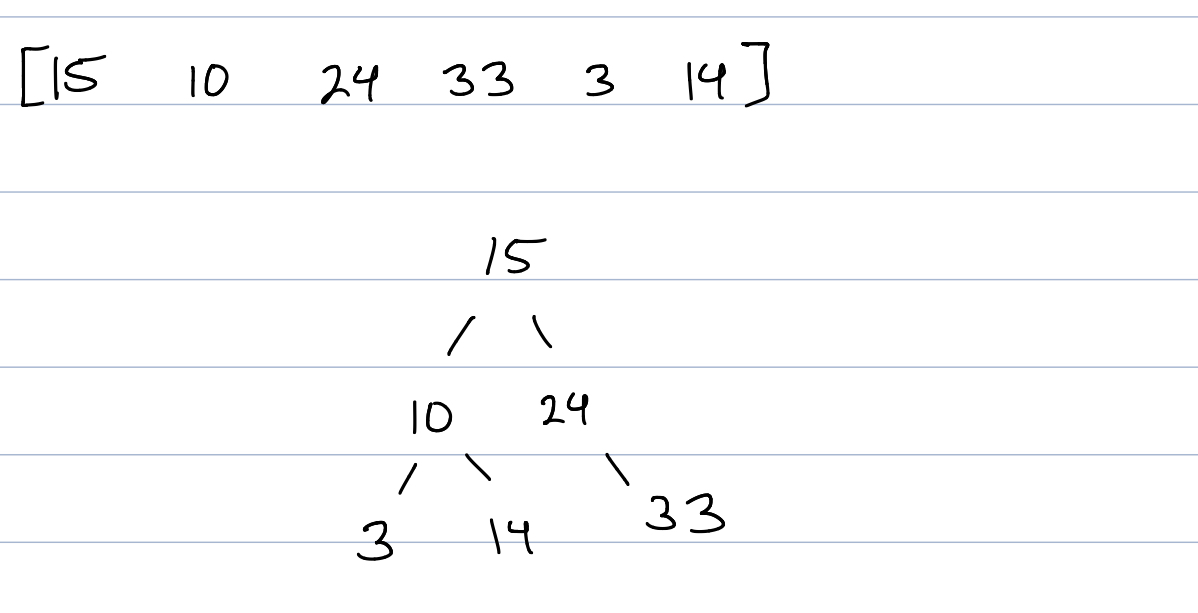 [15 10 24 33 3 14]
15
/ \
10 24
/ \ \
3 14 33